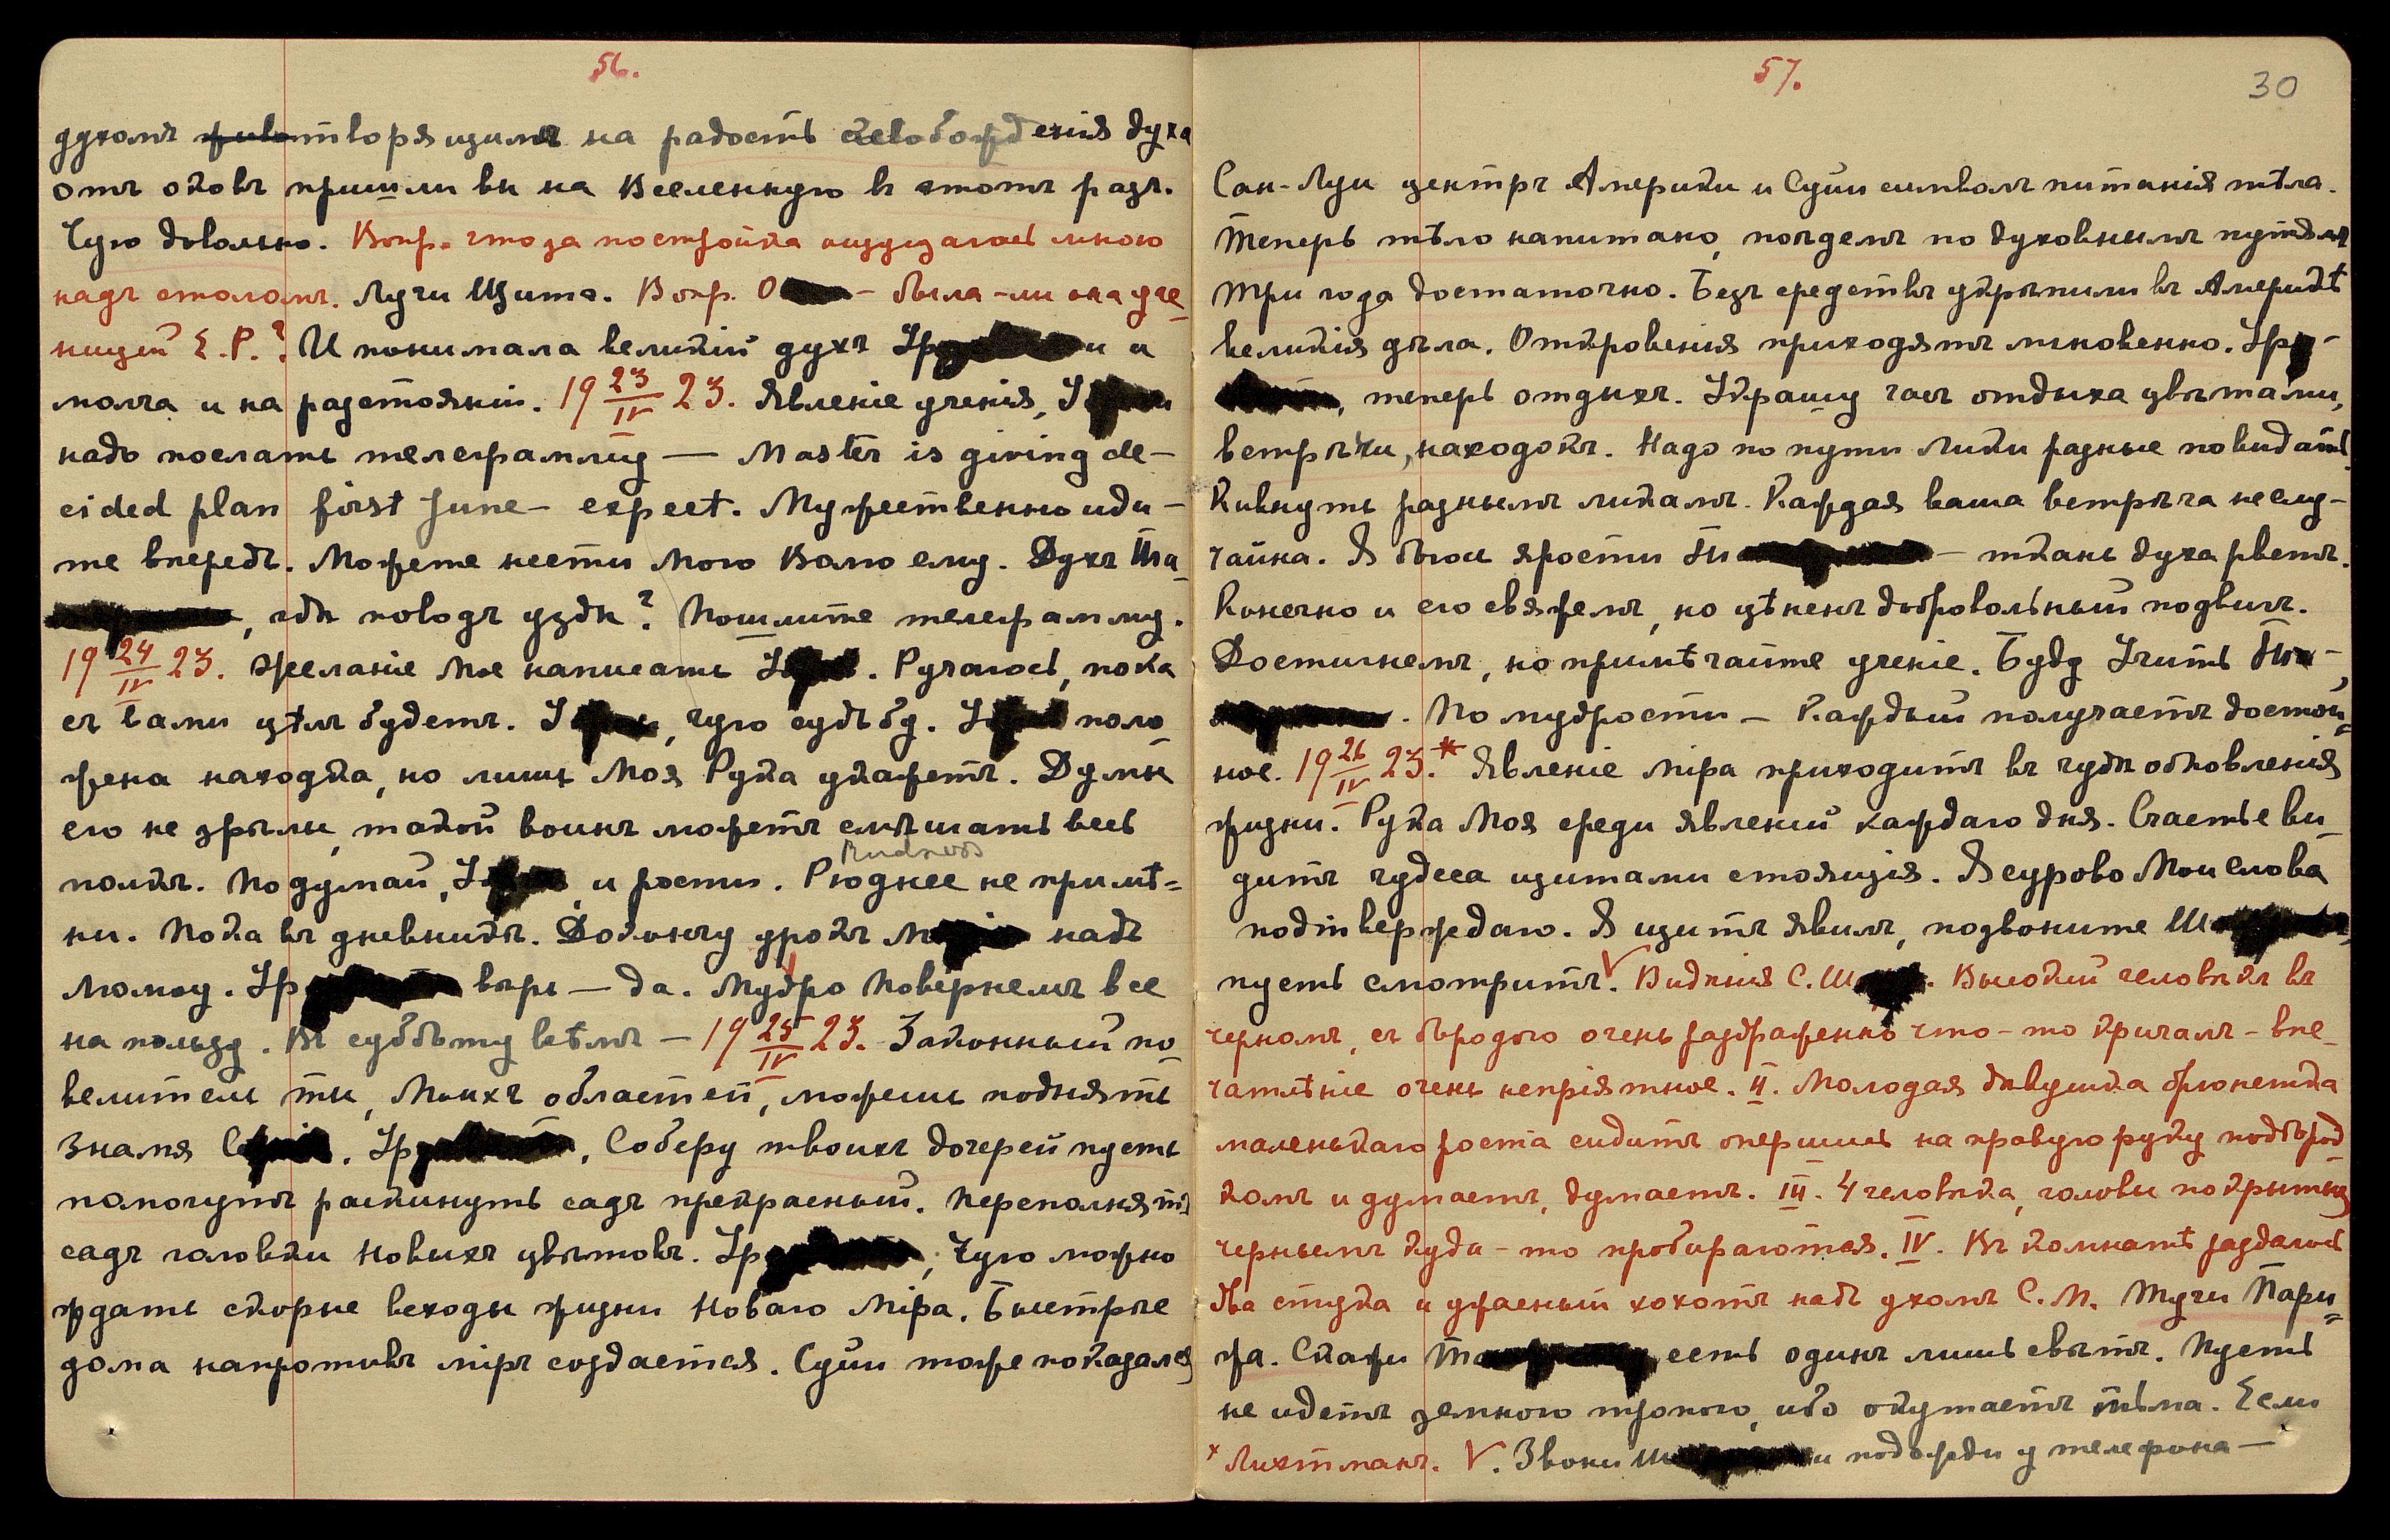 56.
духомъ животворящимъ на радость освобожденія духа
отъ оковъ пришли вы на Вселенную въ этотъ разъ.
Чую довольно. Вопр. что за постройка ощущалась мною
надъ столомъ. Лучи Щита. Вопр. О – была-ли она уче-
ницей Е.Р.? И понимала великій духъ Ур и и
молча и на разстояніи. 19 23/IV 23. Явленіе ученія, У
надо послать телеграмму — Master is giving de-
cided plan first June – expect. Мужественно иди-
те впередъ. Можете нести Мою Волю ему. Духъ
, гдѣ поводъ узды? Пошлите телеграмму.
19 24/IV 23. Желаніе Мое написать У. Ручаюсь, пока
съ вами цѣлъ будетъ. У, чую судьбу. У поло-
жена находка, но лишь Моя Рука укажетъ. Думы
его не зрѣлы, такой воинъ можетъ смѣшать весь
полкъ. Подумай, У, и рости. Рюднес не примѣ-
ни. Пока въ дневникѣ. Докончу урокъ М надъ
Люмоу. Ур вѣрь — да. Мудро Повернемъ все
на пользу. Въ субботу вѣмъ – 19 25/IV 23. Законный по-
велитель ты, Моихъ областей, можешь поднять
Знамя С. Ур, Соберу твоихъ дочерей пусть
помогутъ раскинуть садъ прекрасный. Переполнятъ
садъ головки новыхъ цвѣтовъ. Ур, Чую можно
ждать скорые всходы жизни Новаго Міра. Быстрѣе
дома напротивъ міръ создается. Суйи тоже показался
57.
30
Сан-Луи центръ Америки и Суйи символъ питанія тѣла.
Теперь тѣло напитано, пойдемъ по духовнымъ путямъ
Три года достаточно. Безъ средствъ укрѣпили въ Америкѣ
великія дѣла. Откровенія приходятъ мгновенно. Ур-
, теперь отдыхъ. Украшу часъ отдыха цвѣтами,
встрѣчи, находокъ. Надо по пути Лики разные повидать
Кивнуть разнымъ ликамъ. Каждая ваша встрѣча не слу-
чайна. Я боюсь ярости — ткань духа рветъ.
Конечно и его свяжемъ, но цѣненъ добровольный подвигъ.
Достигнемъ, но примѣчайте ученіе. Буду Учить
. По мудрости – Каждый получаетъ достой-
ное. 19 26/IV 23.* Явленіе міра приходитъ въ чудѣ обновленія
жизни. Рука Моя среди явленій каждаго дня. Счастье ви-
дитъ чудеса щитами стоящія. Я сурово Мои слова
подтверждаю. Я щитъ явилъ, позвоните Ш,
пусть смотритъ. V Видѣнія С. Ш. Высокій человѣкъ въ
черномъ, съ бородою очень раздраженно что-то кричалъ – впе-
чатлѣніе очень непріятное. II. Молодая дѣвушка брюнетка
маленькаго роста сидитъ опершись на правую руку подбород-
комъ и думаетъ, думаетъ. III. 4 человѣка, головы покрыты
чернымъ куда-то пробираются. IV. Въ комнатѣ раздались
два стука и ужасный хохотъ надъ ухомъ С. М. Тучи Пари-
жа. Скажи Т есть одинъ лишь свѣтъ. Пусть
не идетъ земною тропою, ибо окутаетъ тьма. Если
× Лихтманъ. V. Звони Ш и подожди у телефона —